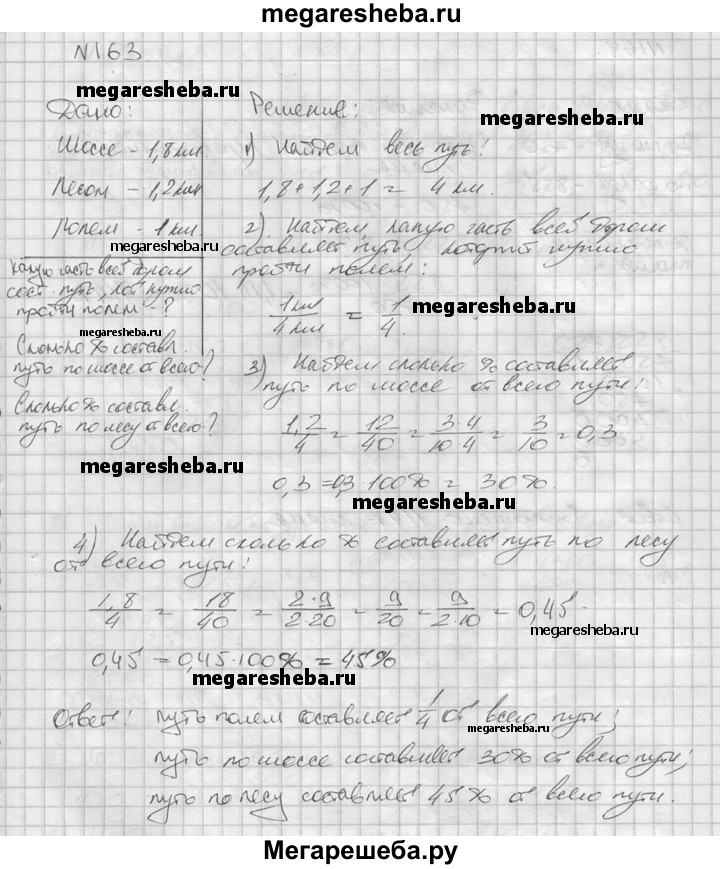 megaresheba.ru
N163
megaresheba.ru
Дано:
Шоссе - 1,8 км
Лесом - 1,2 км
Полем - 1 км.
megaresheba.ru
Какую часть всей дороги
сост. путь, кот. нужно
пройти полем - ?
megaresheba.ru
Сколько % составл.
путь по шоссе от всего?
Сколько % составл.
путь по лесу от всего?
megaresheba.ru
Решение:
megaresheba.ru
1) Найдем весь путь:
1,8 + 1,2 + 1 = 4 км.
2) Найдем, какую часть всей дороги
составляет путь, который нужно
пройти полем:
1км/4км = 1/4.
3) Найдем сколько % составляет
путь по шоссе от всего пути:
1,2/4 = 12/40 = 3·4/10·4 = 3/10 = 0,3
0,3 = 0,3·100% = 30%.
megaresheba.ru
4) Найдем сколько % составляет путь по лесу
от всего пути:
1,8/4 = 18/40 = 2·9/2·20 = 9/20 = 9/2·10 = 0,45.
megaresheba.ru
0,45 = 0,45·100% = 45%
megaresheba.ru
Ответ: путь полем составляет 1/4 от всего пути;
megaresheba.ru
путь по шоссе составляет 30% от всего пути;
путь по лесу составляет 45% от всего пути.
Мегарешеба.ру